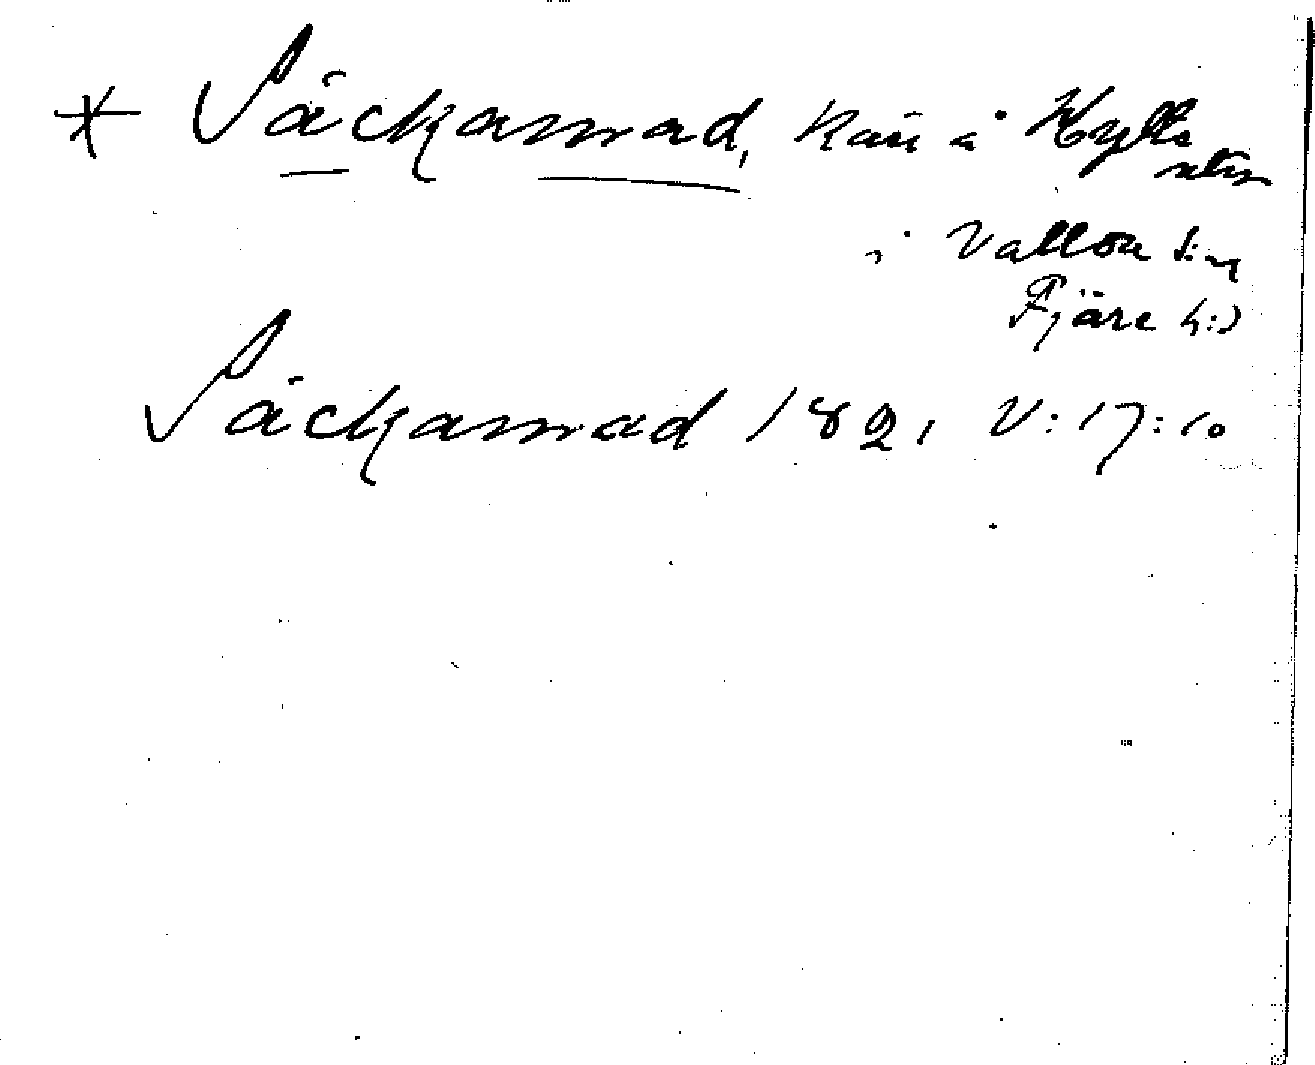 * Säckamad, känt å Kylls
i Vallda sn
Fjäre hd
Säckamad 1821 V:17:10